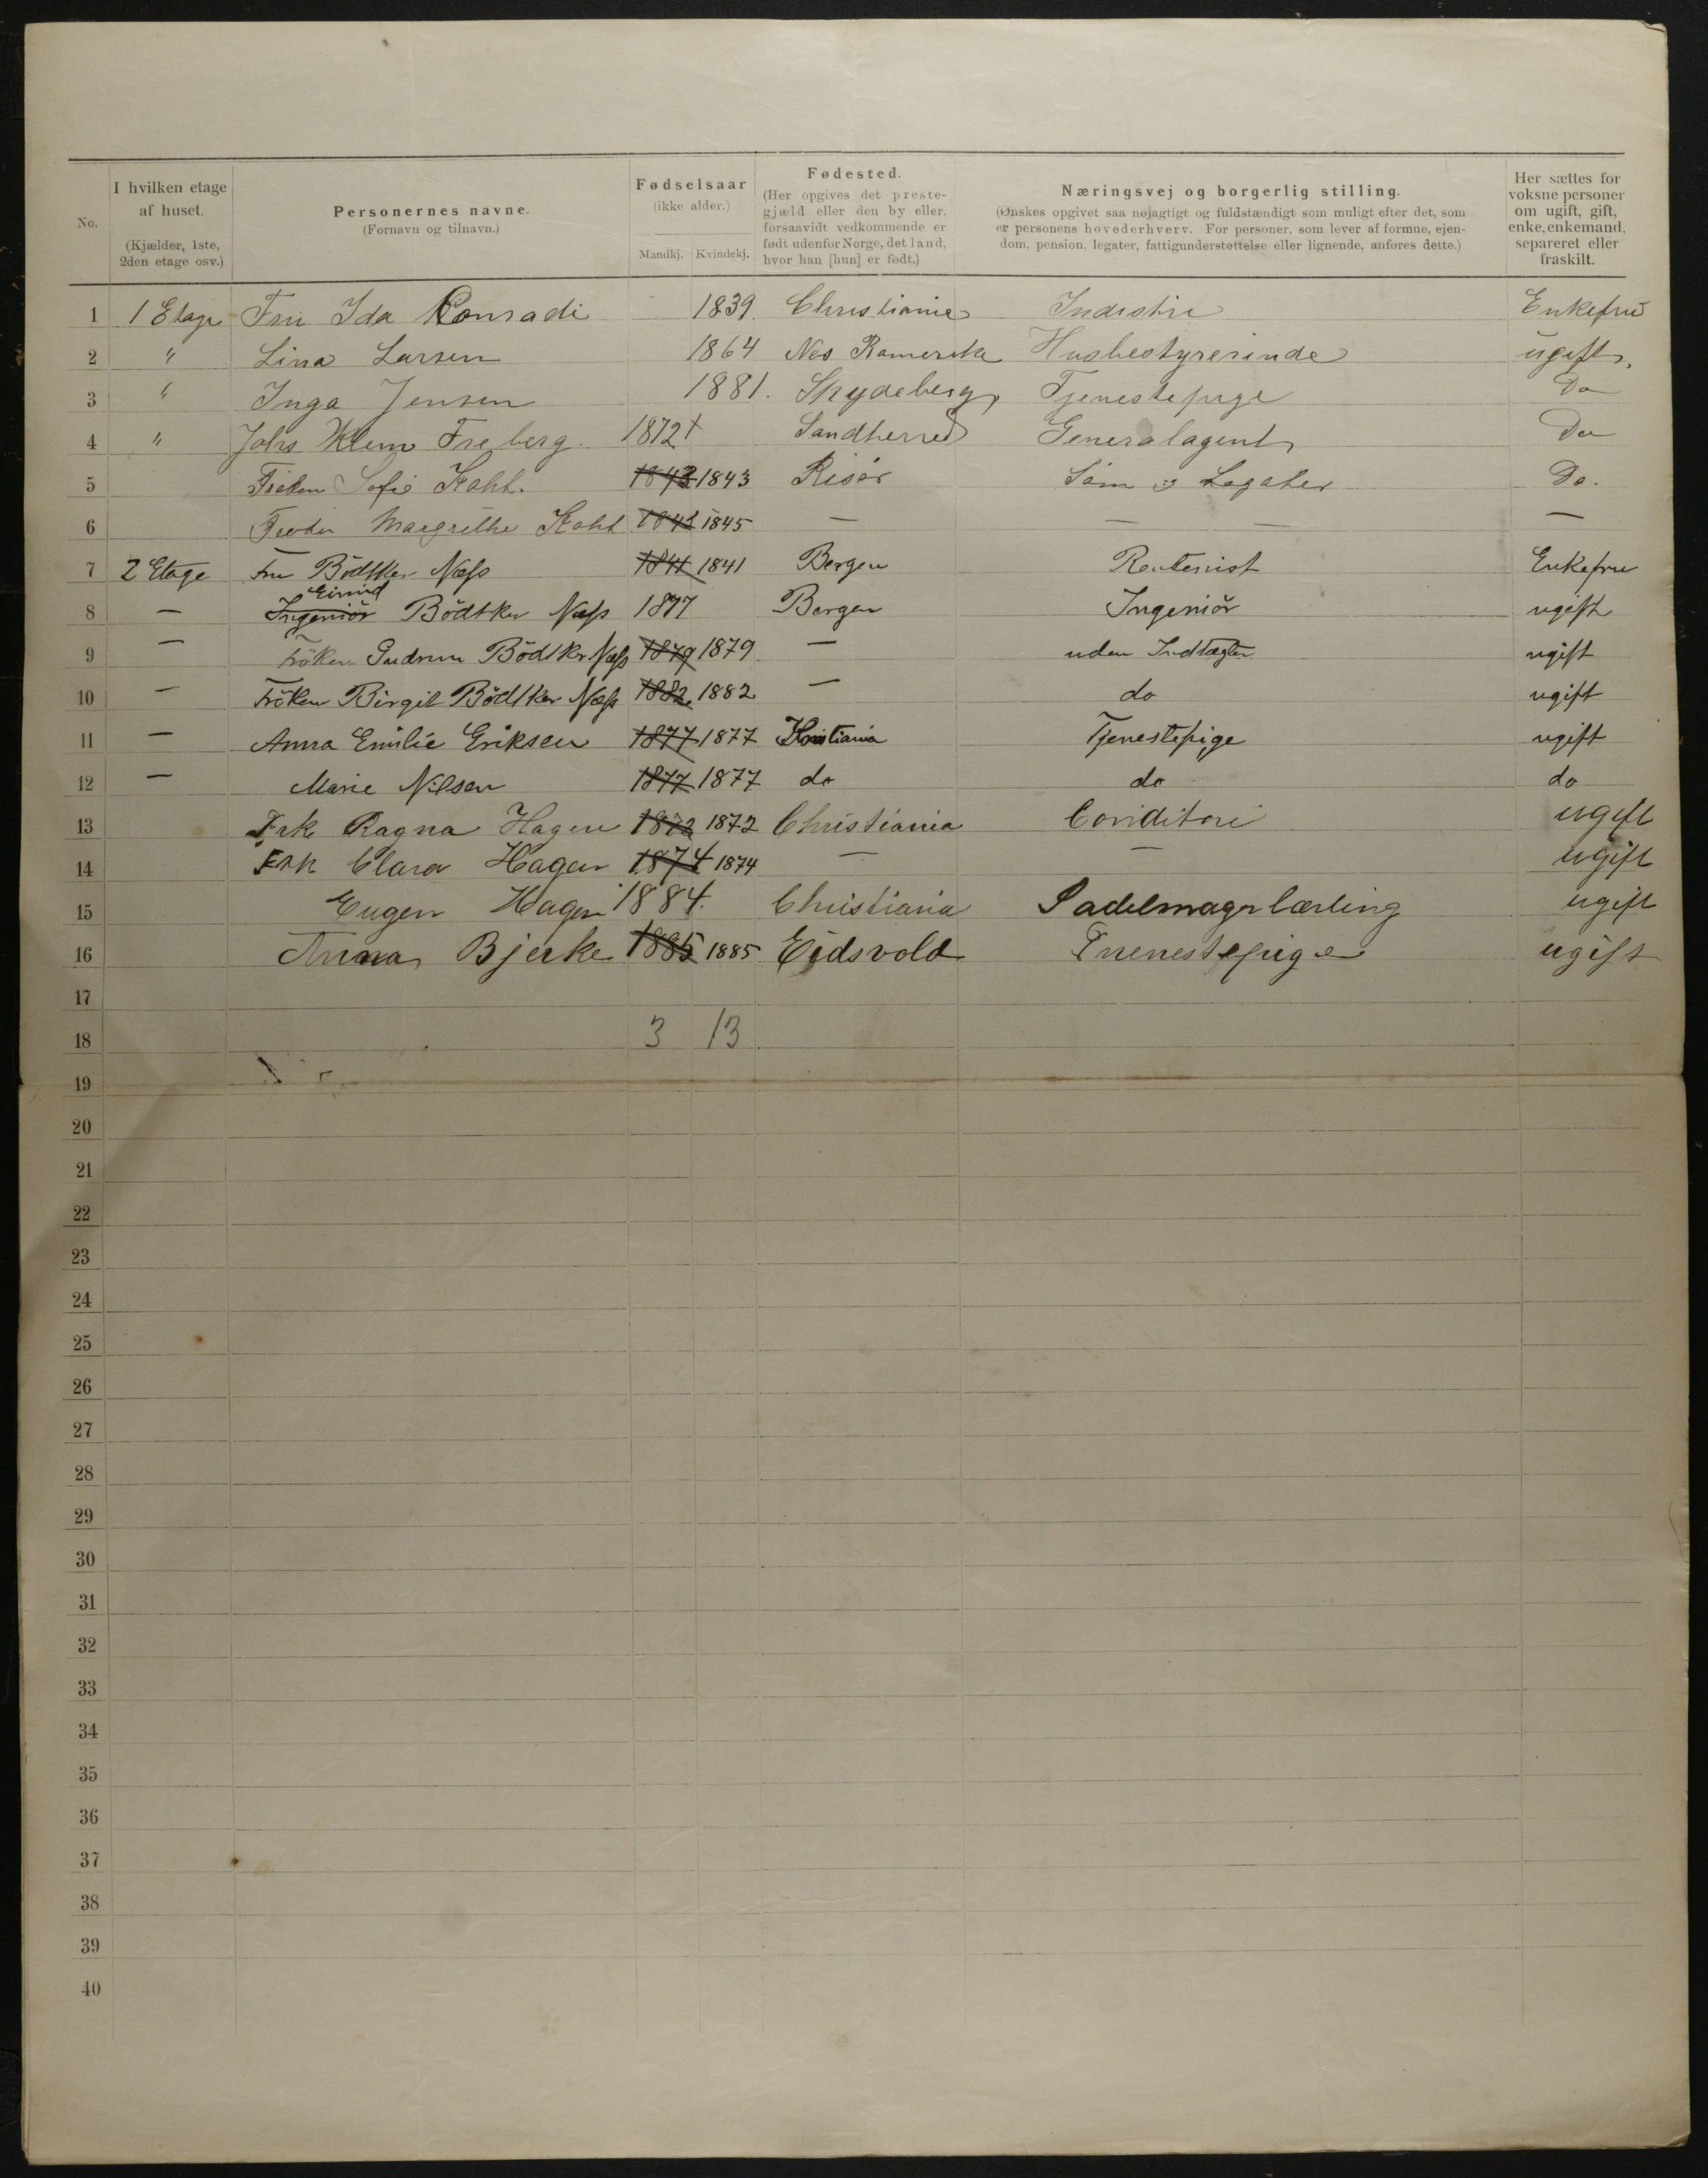 No. | I hvilken etage af huset. (Kjælder, 1ste, 2den etage osv.) | Personernes navne. (Fornavn og tilnavn.) | Fødselsaar (ikke alder.) Mandkj. Kvindekj. | Fødested. (Her opgives det prestegjæld eller den by eller, forsaavidt vedkommende er født udenfor Norge, det land, hvor han [hun] er født.) | Næringsvej og borgerlig stilling. (Ønskes opgivet saa nøjagtigt og fuldstændigt som muligt efter det, som er personens hovederhverv. For personer, som lever af formue, ejendom, pension, legater, fattigunderstøttelse eller lignende, anføres dette.) | Her sættes for voksne personer om ugift, gift, enke, enkemand, separeret eller fraskilt.
1 1 Etage Fru Ida Conradi 1839 Christiania Industri Enkefru
2 " Lina Larsen 1864 Nes Romerike Husbestyrerinde ugift,
3 " Inga Jensen 1881. Skydeberg Tjenestepige Do
4 " Johs Klem Freberg. 1872 + Sandherred Generalagent Do
5 Frøken Sofie Kahl. 1843 1843 Risør Søm og Legater Do.
6 Frøken Margrethe Kahl 1845 — — — —
7 2 Etage Fru Bödtker Næss 1841 1841 Bergen Rentenist Enkefru
8 — Ingeniör Eivind Bödtker Næss 1877 Bergen Ingeniör ugift
9 — Fröken Gudrun Bödtker Næss 1879 1879 — uden Indtægter ugift
10 — Fröken Birgit Bödtker Næss 1882 1882 — do ugift
11 — Anna Emilie Eriksen 1877 1877 Kristiania Tjenestepige ugift
12 — Marie Nilsen 1877 1877 do do do
13 Frk Ragna Hagen 1872 1872 Christiania Conditori ugift
14 Frk Clara Hagen 1874 1874 — — ugift
15 Eugen Hagen 1884. Christiania Sadelmagerlærling ugift
16 Anna Bjerke 1885 1885 Eidsvold Tjenestepige ugift
17
18 3 13
19
20
21
22
23
24
25
26
27
28
29
30
31
32
33
34
35
36
37
38
39
40